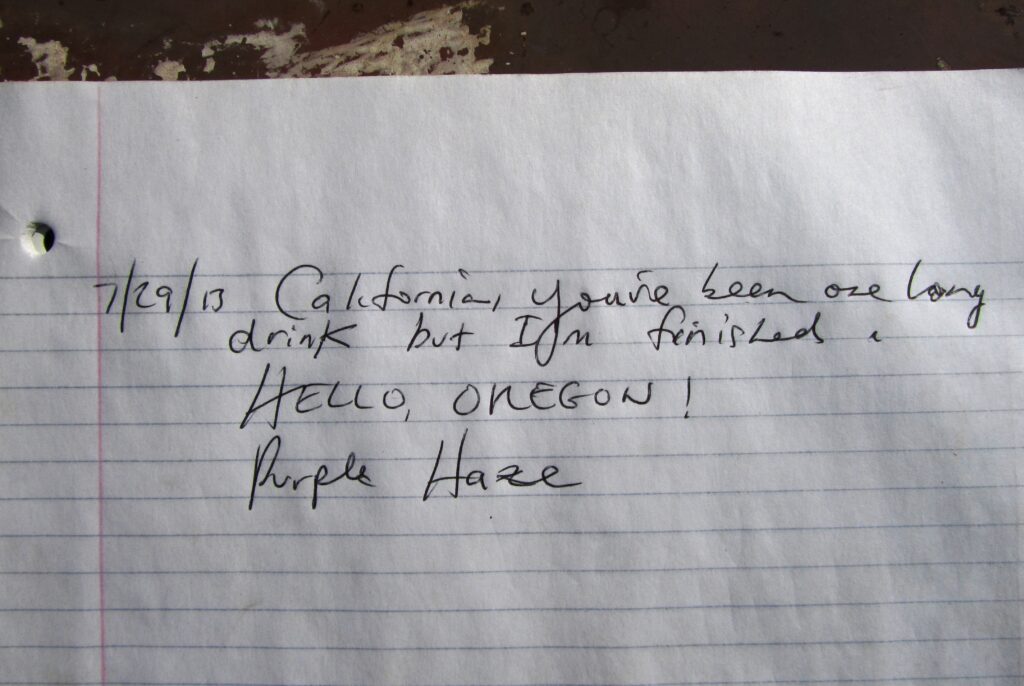 7/29/13 California, you've been one long
drink but I'm finished.
HELLO, OREGON!
Purple Haze